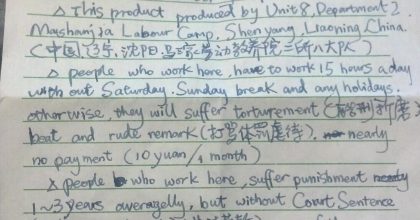 △ This product produced by Unit 8, Department 2
Mashanjia Labour Camp, Shenyang, Liaoning, China.
(中国, 辽宁, 沈阳, 马三家劳动教养院二所八大队)
△ people who work here, have to work 15 hours a day
with out Saturday. Sunday break and any holidays.
otherwise, they will suffer torturement (酷刑) 折磨
beat and rude remark (打骂体罚虐待). nearly
no payment (10 yuan/1 month)
△ people who work here, suffer punishment
1~3 years averagelly, but without Court Sentence